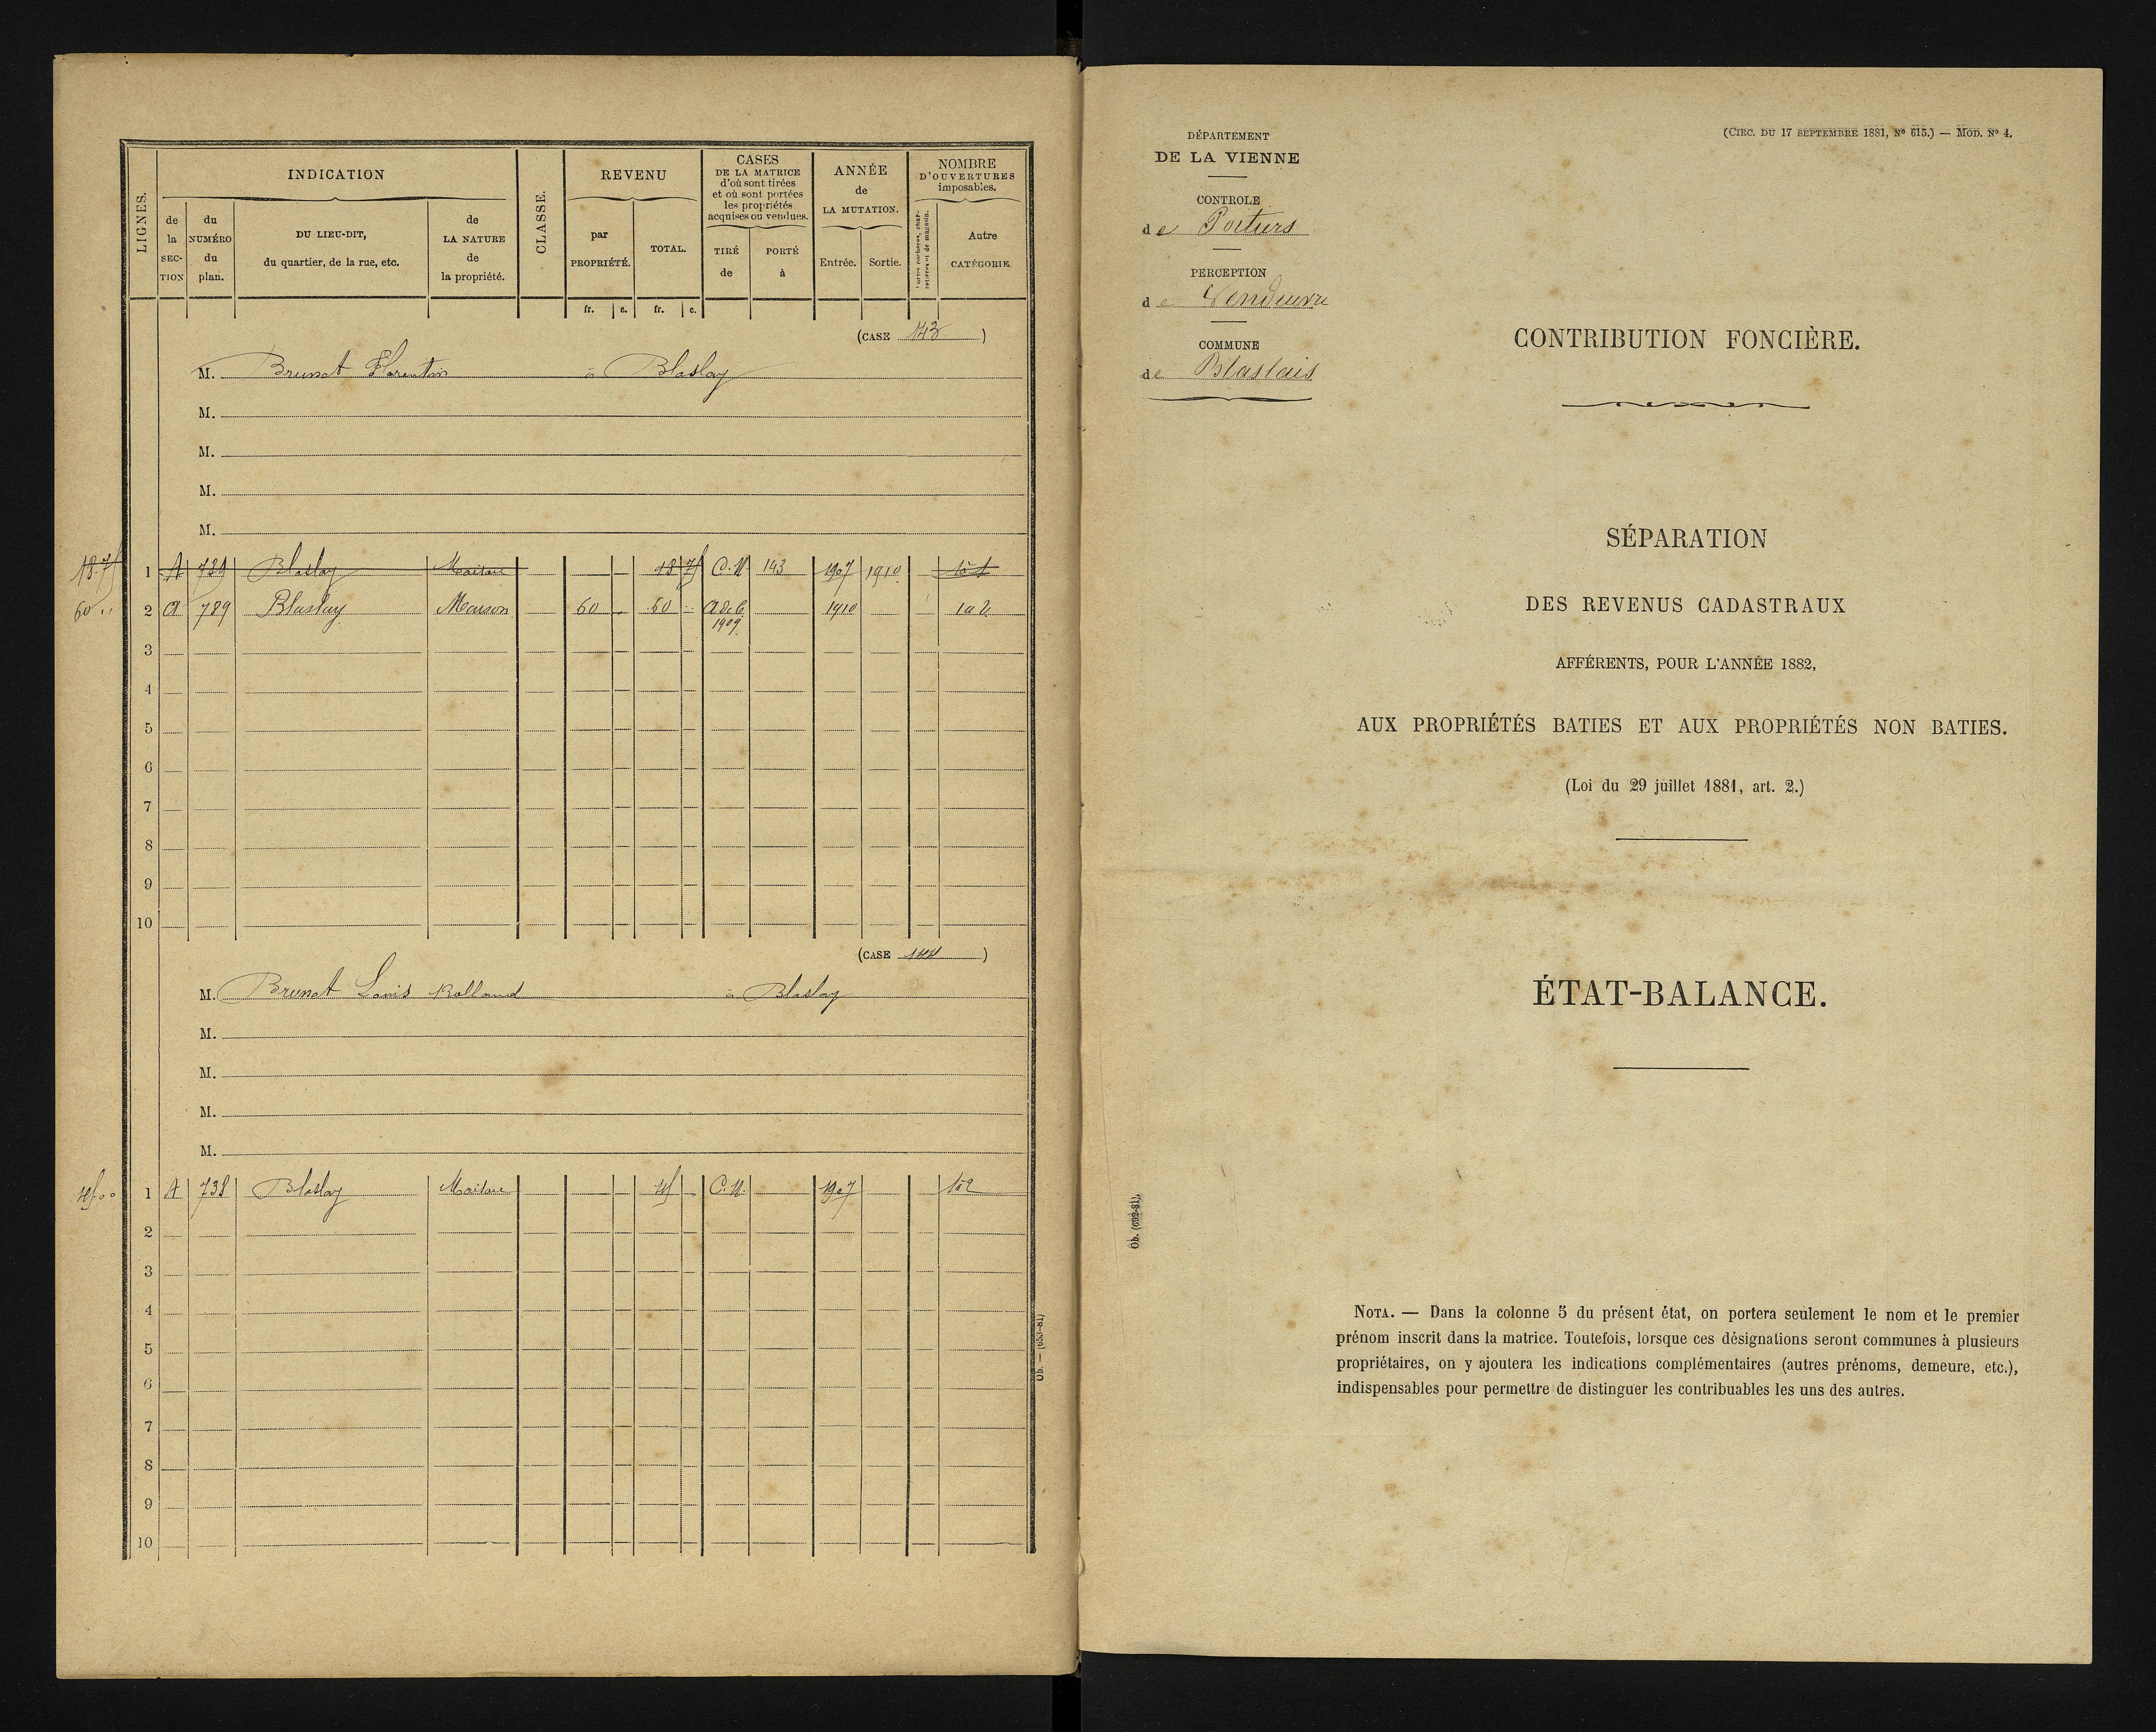 LIGNES.
INDICATION
de la SECTION
du NUMÉRO du plan.
DU LIEU-DIT,
du quartier, de la rue, etc.
de LA NATURE de la propriété.
CLASSE.
REVENU
par PROPRIÉTÉ.
TOTAL.
CASES
DE LA MATRICE
d'où sont tirées
et où sont portées
les propriétés
acquises ou vendues.
TIRÉ de
PORTÉ à
ANNÉE
de
LA MUTATION.
Entrée.
Sortie.
NOMBRE
D'OUVERTURES
imposables.
Portes cochères, charretières et de magasin.
Autre
CATÉGORIE.
fr. c. fr. c.
(CASE 143)
M. Brunet Florentin à Blaslay
M.
M.
M.
M.
18.75 1 A 789 Blaslay Maison 18 75 C.N. 143 1907 1910
60 " 2 A 789 Blaslay Maison 60 60 A de C 1909 1910 1 à 2
3
4
5
6
7
8
9
10
(CASE 144)
M. Brunet Louis Rolland à Blaslay
M.
M.
M.
M.
1 A 738 Blaslay Maison C.N. 1907 1 à 2
2
3
4
5
6
7
8
9
10
Ob. — (653-81)
DÉPARTEMENT
DE LA VIENNE
CONTROLE
de Poitiers
PERCEPTION
de Vendeuvre
COMMUNE
de Blaslais
(CIRC. DU 17 SEPTEMBRE 1881, N° 615.) — MOD. N° 4.
CONTRIBUTION FONCIÈRE.
SÉPARATION
DES REVENUS CADASTRAUX
AFFÉRENTS, POUR L'ANNÉE 1882,
AUX PROPRIÉTÉS BATIES ET AUX PROPRIÉTÉS NON BATIES.
(Loi du 29 juillet 1881, art. 2.)
ÉTAT-BALANCE.
Ob. (692-81).
NOTA. — Dans la colonne 5 du présent état, on portera seulement le nom et le premier
prénom inscrit dans la matrice. Toutefois, lorsque ces désignations seront communes à plusieurs
propriétaires, on y ajoutera les indications complémentaires (autres prénoms, demeure, etc.),
indispensables pour permettre de distinguer les contribuables les uns des autres.